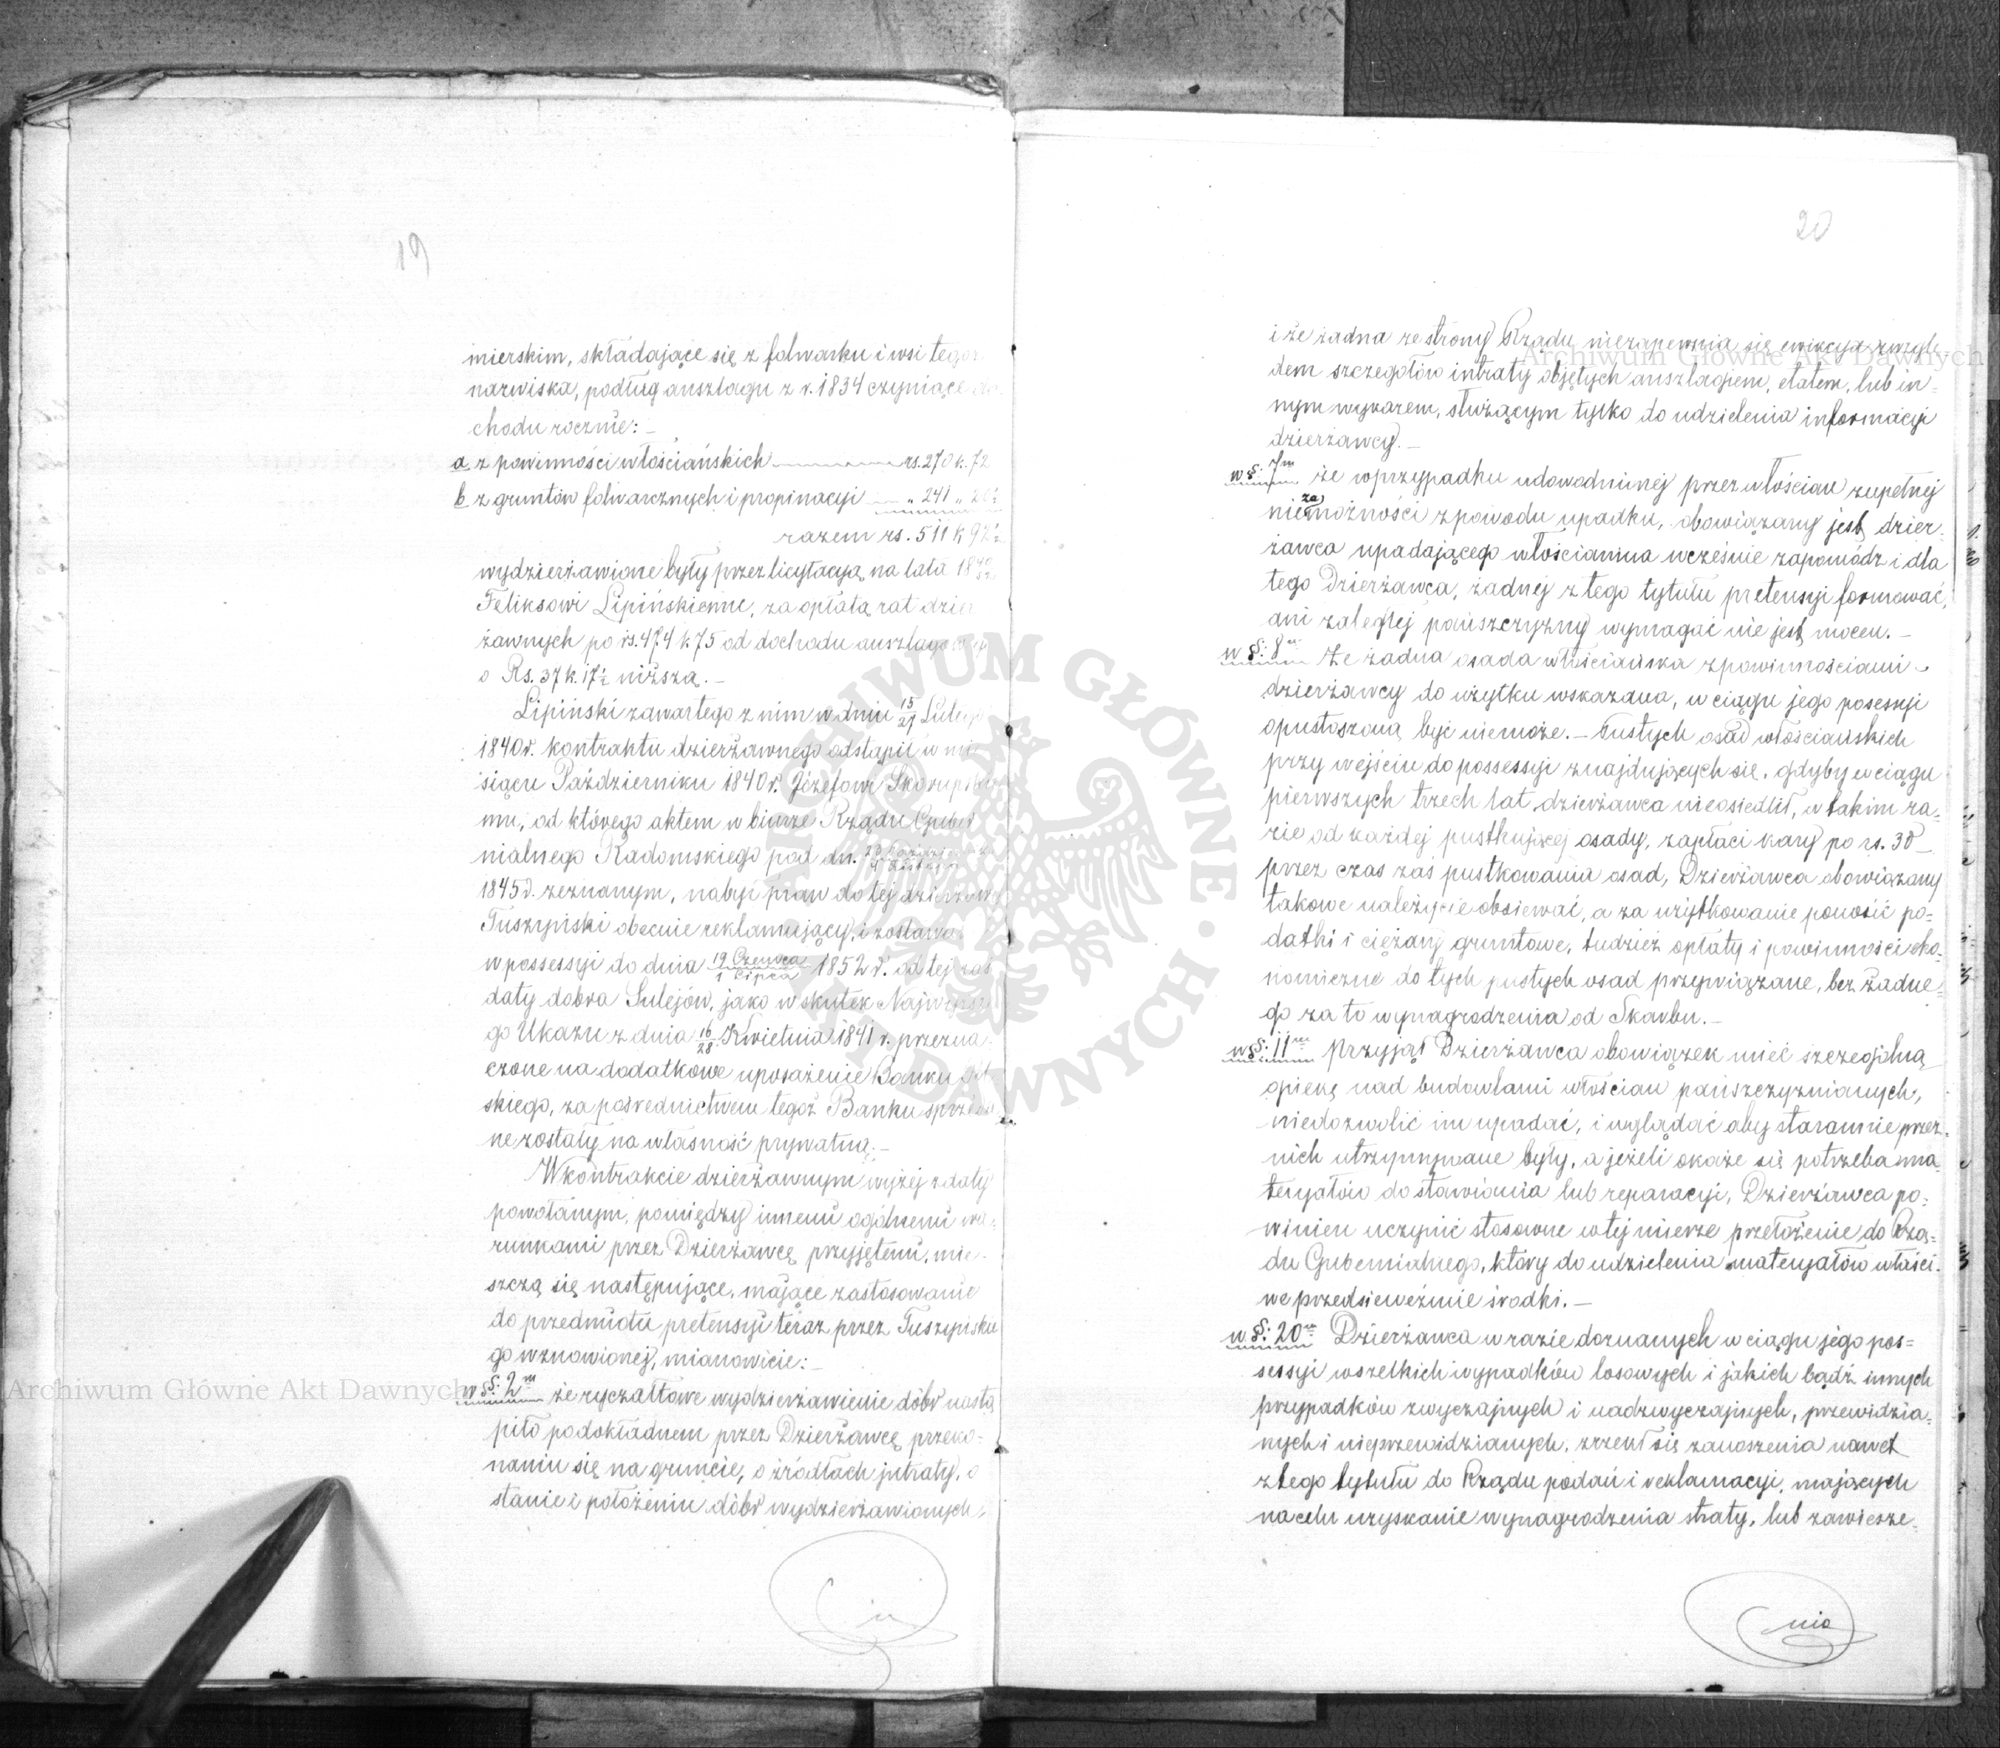 19
mierskim, składające się z folwarku i wsi tegoż
nazwiska, podług anszlagu z r. 1834 czyniące do
chodu rocznie: —
a z powinności włościańskich rs. 270 k. 72
b z gruntów folwarcznych i propinacyi " 241 " 20½
razem rs. 511 k 92½
wydzierżawione były przez licytacyą na lata 18
Feliksowi Lipińskiemu, za opłatą rat dzier
żawnych po rs. 474 k 75 od dochodu anszlagowego
o Rs. 37 k. 17½ niższą. —
Lipiński zawartego z nim w dniu 15/27 Lutego
1840 r. kontraktu dzierżawnego odstąpił w mie
siącu Październiku 1840 r. Józefowi Skorupskie
mu, od którego aktem w biurze Rządu Guber
nialnego Radomskiego pod dn.
1845 r. zeznanym, nabył praw do tej dzierżawy
Tuszyński obecnie reklamujący, i zostawał
w possessyi do dnia 19 Czerwca/1 Lipca 1852 r. od tej zaś
daty dobra Sulejów, jako w skutek Najwyższe
go Ukazu z dnia 16/28 Kwietnia 1841 r. przezna
czone na dodatkowe uposażenie Banku Pol
skiego, za pośrednictwem tegoż Banku sprzeda
ne zostały na własność prywatną. —
W kontrakcie dzierżawnym wyżej z daty
powołanym, pomiędzy innemi ogólnemi wa-
runkami przez Dzierżawcę przyjętemi, mie-
szczą się następujące, mające zastosowanie
do przedmiotu pretensyi teraz przez Tuszyńskie
go wznowionej, mianowicie: —
w §: 2m że ryczałtowe wydzierżawienie dóbr nastą
piło po dokładnem przez Dzierżawcę przeko-
naniu się na gruncie, o źródłach intraty, o
stanie i położeniu dóbr wydzierżawionych,
20
i że żadna ze strony Rządu niezapewnia się ewikcya wzglę-
dem szczegółów intraty objętych anszlagiem, etatem, lub in-
nym wykazem, służącym tylko do udzielenia informacyi
dzierżawcy. —
w §: 7m że w przypadku udowodnionej przez włościan zupełnej
niezamożności z powodu upadku, obowiązany jest dzier-
żawca upadającego włościanina wcześnie zapomódz i dla
tego Dzierżawca, żadnej z tego tytułu pretensyi formować,
ani zaległej pańszczyzny wymagać nie jest mocen. —
w §: 8m Że żadna osada włościańska z powinnościami
dzierżawcy do użytku wskazana, w ciągu jego posessyi
opustoszoną być niemoże. — Pustych osad włościańskich
przy wejściu do possessyi znajdujących się, gdyby w ciągu
pierwszych trzech lat dzierżawca nieosiedlił, w takim ra-
zie od każdej pustkującej osady, zapłaci kary po rs. 30
przez czas zaś pustkowania osad, Dzierżawca obowiązany
takowe należycie obsiewać, a za użytkowanie ponosić po-
datki i ciężary gruntowe, tudzież opłaty i powinności eko-
nomiczne do tych pustych osad przywiązane, bez żadne-
go za to wynagrodzenia od Skarbu. —
w §: 11m przyjął Dzierżawca obowiązek mieć szczególną
opiekę nad budowlami włościan pańszczyznianych,
niedozwolić im upadać, i wglądać aby starannie przez
nich utrzymywane były, a jeżeli okaże się potrzeba ma-
teryałów do stawiania lub reparacyi, Dzierżawca po-
winien uczynić stosowne w tej mierze przełożenie do Rzą-
du Gubernialnego, który do udzielenia materyałów właści-
we przedsieweźmie środki. —
w §: 20m Dzierżawca w razie doznanych w ciągu jego pos-
sessyi wszelkich wypadków losowych i jakich bądź innych
przypadków zwyczajnych i nadzwyczajnych, przewidzia-
nych i nieprzewidzianych, zrzekł się zanoszenia nawet
z tego tytułu do Rządu podań i reklamacyi, mających
na celu uzyskanie wynagrodzenia straty, lub zawiesze-
nia
Archiwum Główne Akt Dawnych
Archiwum Główne Akt Dawnych
ARCHIWUM GŁÓWNE AKT DAWNYCH